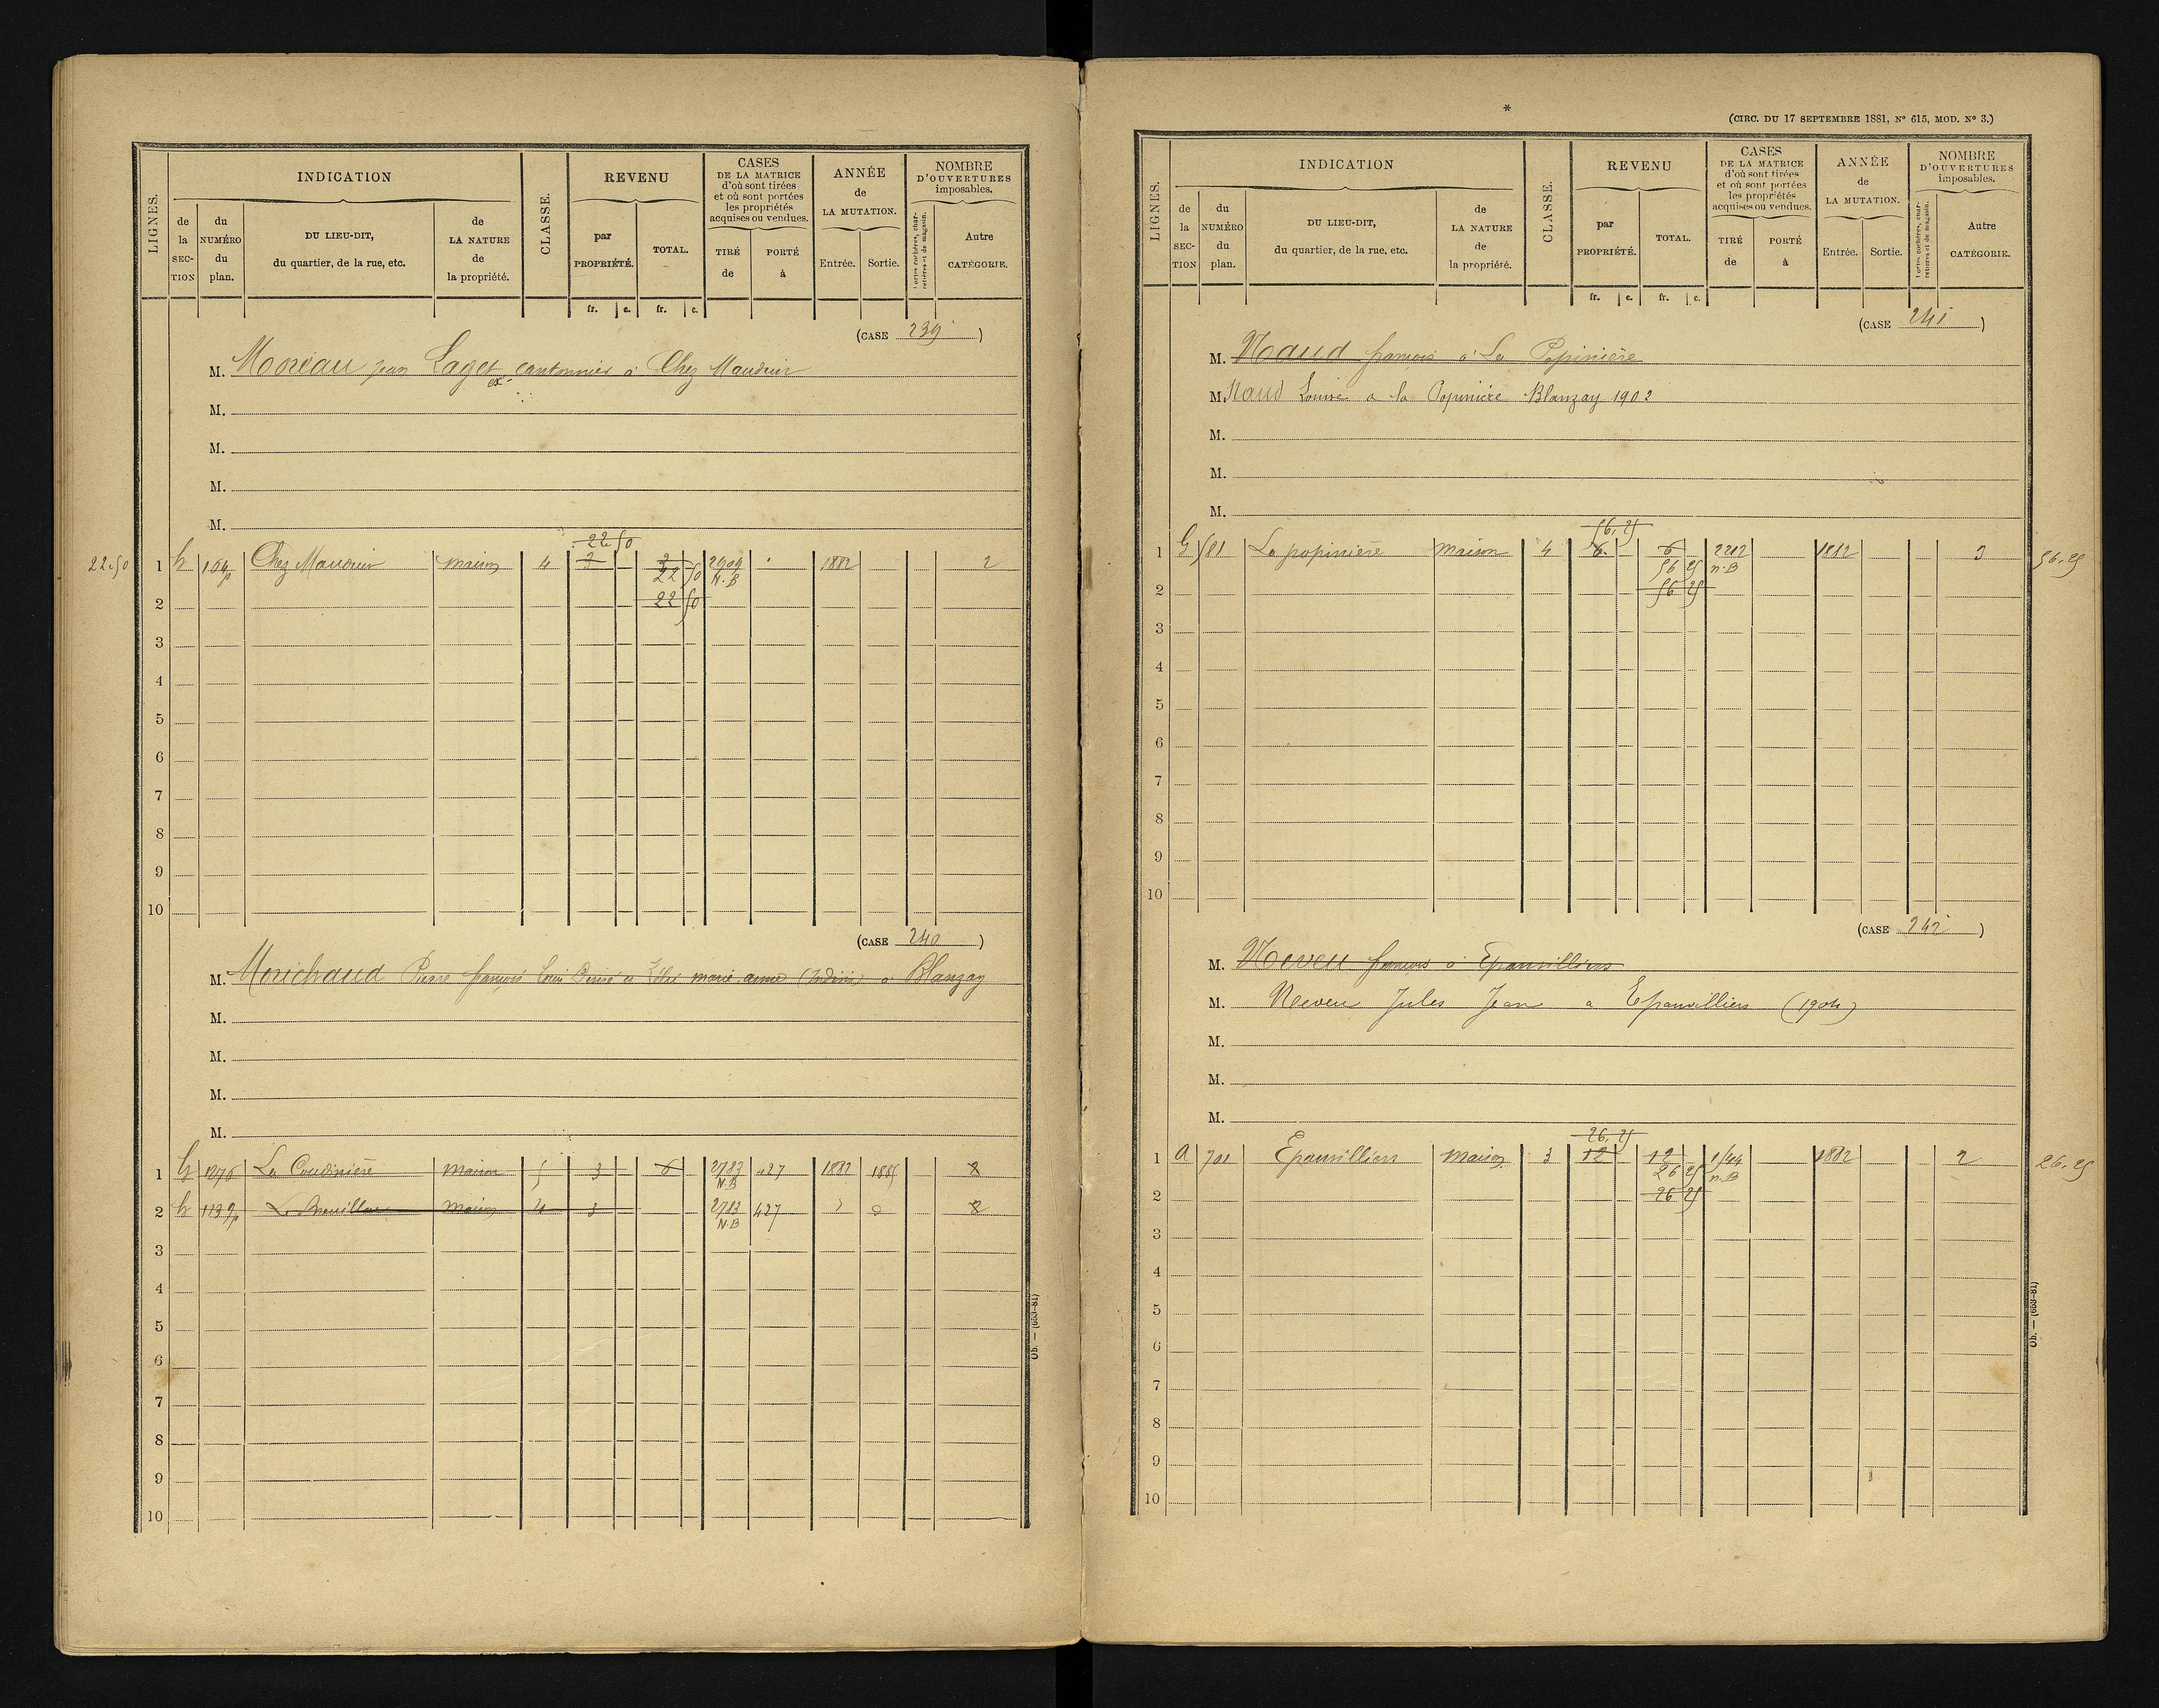 LIGNES.
INDICATION
de la SEC-TION
du NUMÉRO du plan.
DU LIEU-DIT, du quartier, de la rue, etc.
de LA NATURE de la propriété.
CLASSE.
REVENU
par PROPRIÉTÉ.
TOTAL.
CASES DE LA MATRICE d'où sont tirées et où sont portées les propriétés acquises ou vendues.
TIRÉ de
PORTÉ à
ANNÉE de LA MUTATION.
Entrée.
Sortie.
NOMBRE D'OUVERTURES imposables.
Portes cochères, charretières et de magasin.
Autre CATÉGORIE.
fr. c. fr. c.
(CASE 239)
M. Moreau jean Laget ex. cantonnier à Chez Mauduir
M.
M.
M.
M.
22.50
22.50 1 h 164p Chez Mauduir maison 4 3 3 2909 1882 2
22 50 N.B
2 22 50
3
4
5
6
7
8
9
10
(CASE 240)
M. Morichaud Pierre françois Louis marie anne (Indivis) à Blanzay
M.
M.
M.
M.
1 h 1276 La Coudinière maison 5 3 6 2783 427 1882 1885 2
N.B
2 h 1139p maison 4 3 2783 427 2
N B
3
4
5
6
7
8
9
10
Ob. — (653-81)
*
(CIRC. DU 17 SEPTEMBRE 1881, N° 615, MOD. N° 3.)
LIGNES.
INDICATION
de la SEC-TION
du NUMÉRO du plan.
DU LIEU-DIT, du quartier, de la rue, etc.
de LA NATURE de la propriété.
CLASSE.
REVENU
par PROPRIÉTÉ.
TOTAL.
CASES DE LA MATRICE d'où sont tirées et où sont portées les propriétés acquises ou vendues.
TIRÉ de
PORTÉ à
ANNÉE de LA MUTATION.
Entrée.
Sortie.
NOMBRE D'OUVERTURES imposables.
Portes cochères, charretières et de magasin.
Autre CATÉGORIE.
fr. c. fr. c.
(CASE 241)
M. Naud françois à La Popinière
M. Naud Louise a la Popinière Blanzay 1902
M.
M.
M.
56.25
1 G 581 La popinière maison 4 6 6 2212 1882 3 56.25
56 25 n.B
2 56 25
3
4
5
6
7
8
9
10
(CASE 242)
M. Neveu françois à Epanvilliers
M. Neveu Jules Jean a Epanvilliers (1904)
M.
M.
M.
26.25
1 a 701 Epanvilliers maison 3 12 12 1544 1882 2 26.25
26 25 n.B
2 26 25
3
4
5
6
7
8
9
10
Ob. — (653-81)